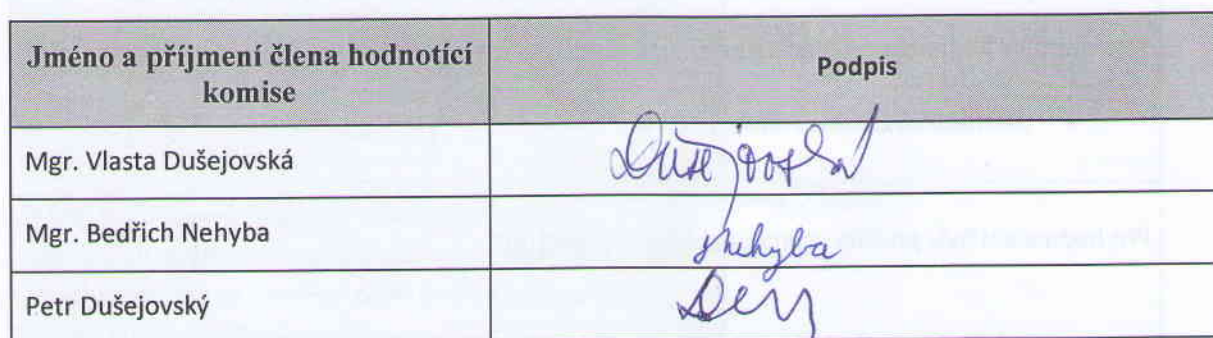 Jméno a příjmení člena hodnotící
komise
Podpis
Mgr. Vlasta Dušejovská
Mgr. Bedřich Nehyba
Nehyba
Petr Dušejovský